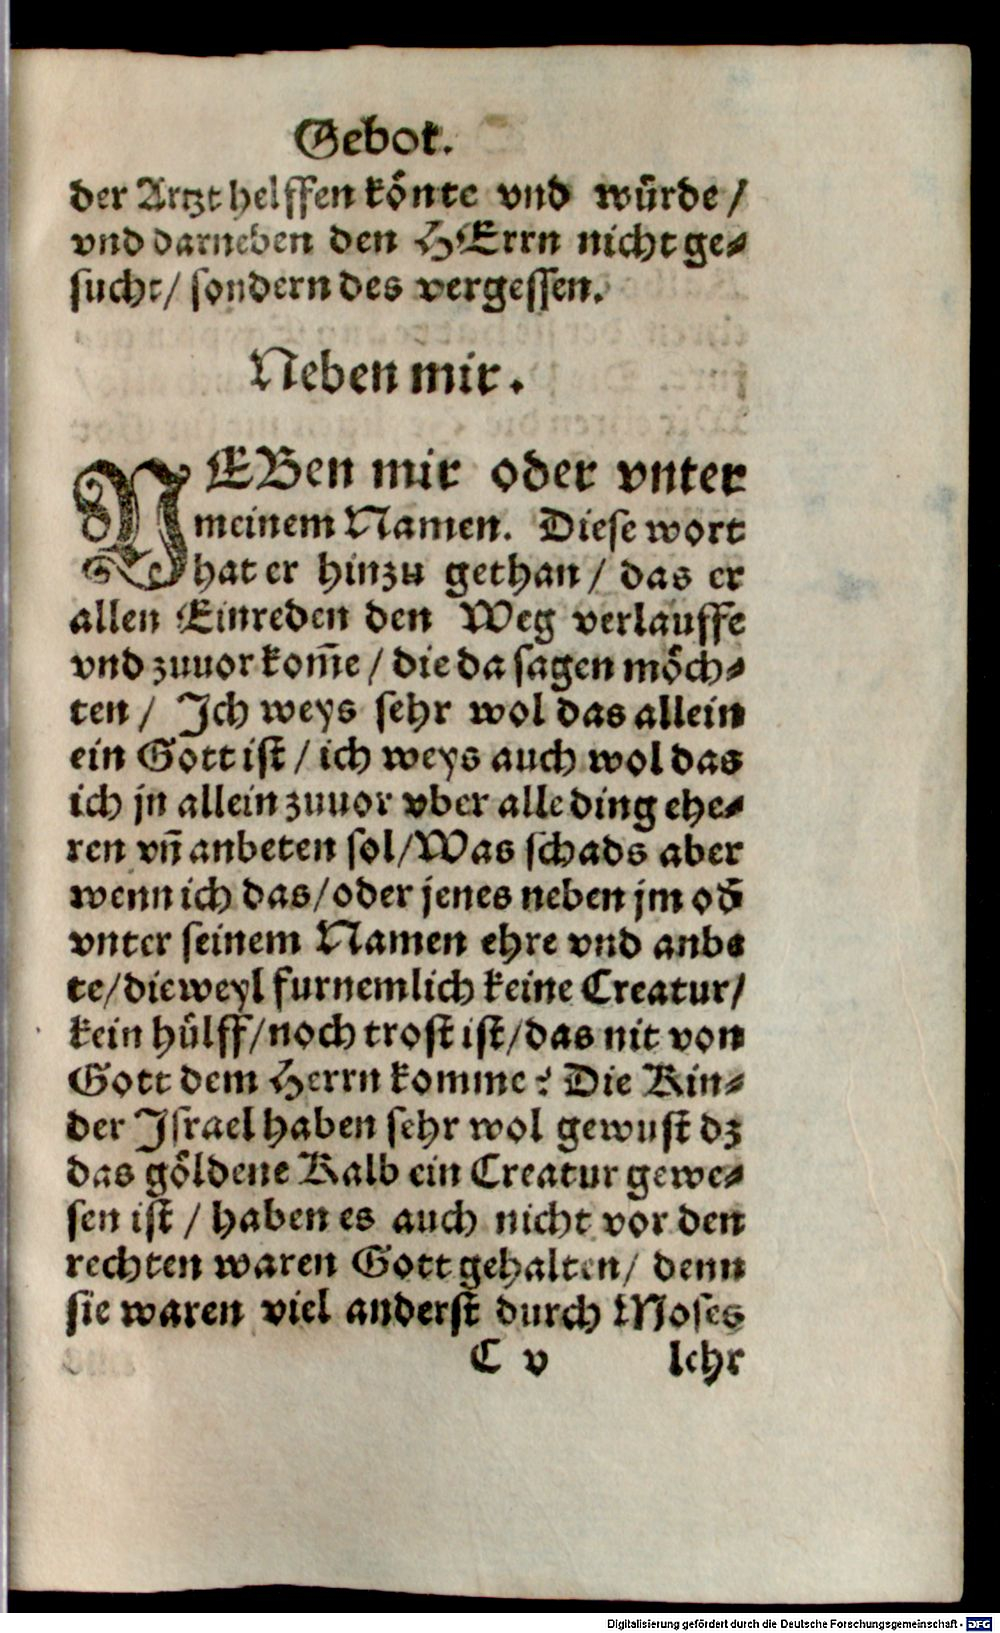 Gebot.
der Artzt helffen könte vnd würde /
vnd darneben den HErrn nicht ge⸗
sucht / sondern des vergessen.
Neben mir.
NEBen mir oder vnter
meinem Namen. Diese wort
hat er hinzu gethan / das er
allen Einreden den Weg verlauffe
vnd zuuor kom̅e / die da sagen möch⸗
ten / Ich weys sehr wol das allein
ein Gott ist / ich weys auch wol das
ich jn allein zuuor vber alle ding ehe⸗
ren vn̅ anbeten sol / Was schads aber
wenn ich das / oder jenes neben jm od̅
vnter seinem Namen ehre vnd anbe
te / dieweyl furnemlich keine Creatur /
kein hülff / noch trost ist / das nit von
Gott dem Herrn komme? Die Kin⸗
der Israel haben sehr wol gewust dz
das göldene Kalb ein Creatur gewe⸗
sen ist / haben es auch nicht vor den
rechten waren Gott gehalten / denn
sie waren viel anderst durch Moses
C v lehr
Digitalisierung gefördert durch die Deutsche Forschungsgemeinschaft - DFG